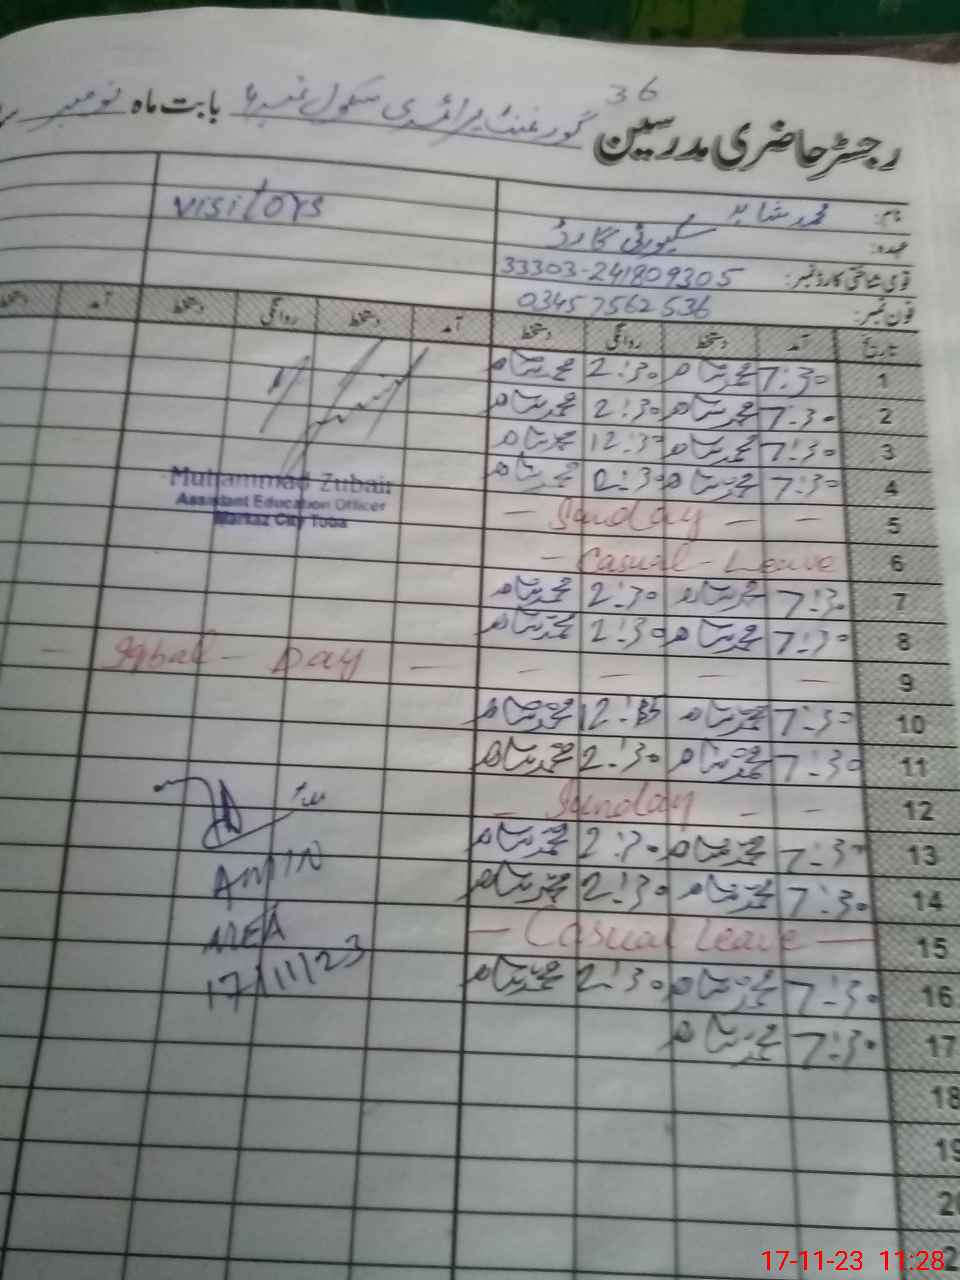 36
رجسٹر حاضری مدرسین گورنمنٹ پرائمری سکول نمبر بابت ماہ نومبر
نام: محمد شاہد visitors
عہدہ: سکیورٹی گارڈ
قومی شناختی کارڈ نمبر: 33303-241809305
فون نمبر: 03457562536
تاریخ آمد دستخط روانگی دستخط آمد دستخط روانگی دستخط آمد دستخط
1 7:30 محمد شاہد 2:30 محمد شاہد
2 7:30 محمد شاہد 2:30 محمد شاہد
3 7:30 محمد شاہد 12:30 محمد شاہد
4 7:30 محمد شاہد 2:30 محمد شاہد
Muhammad Zubair
Assistant Education Officer
Markaz City Toba
5 - Sunday - -
6 - Casual - Leave
7 7:30 محمد شاہد 2:30 محمد شاہد
8 7:30 محمد شاہد 2:30 محمد شاہد
9 - Iqbal - Day - - - -
10 7:30 محمد شاہد محمد شاہد
11 7:30 محمد شاہد 2:30 محمد شاہد
12 - Sunday - -
13 7:30 محمد شاہد 2:30 محمد شاہد
14 7:30 محمد شاہد 2:30 محمد شاہد
AMIN
15 - Casual Leave -
MEA
16 7:30 محمد شاہد 2:30 محمد شاہد
17/11/23
17 7:30 محمد شاہد
18
19
20
17-11-23 11:28